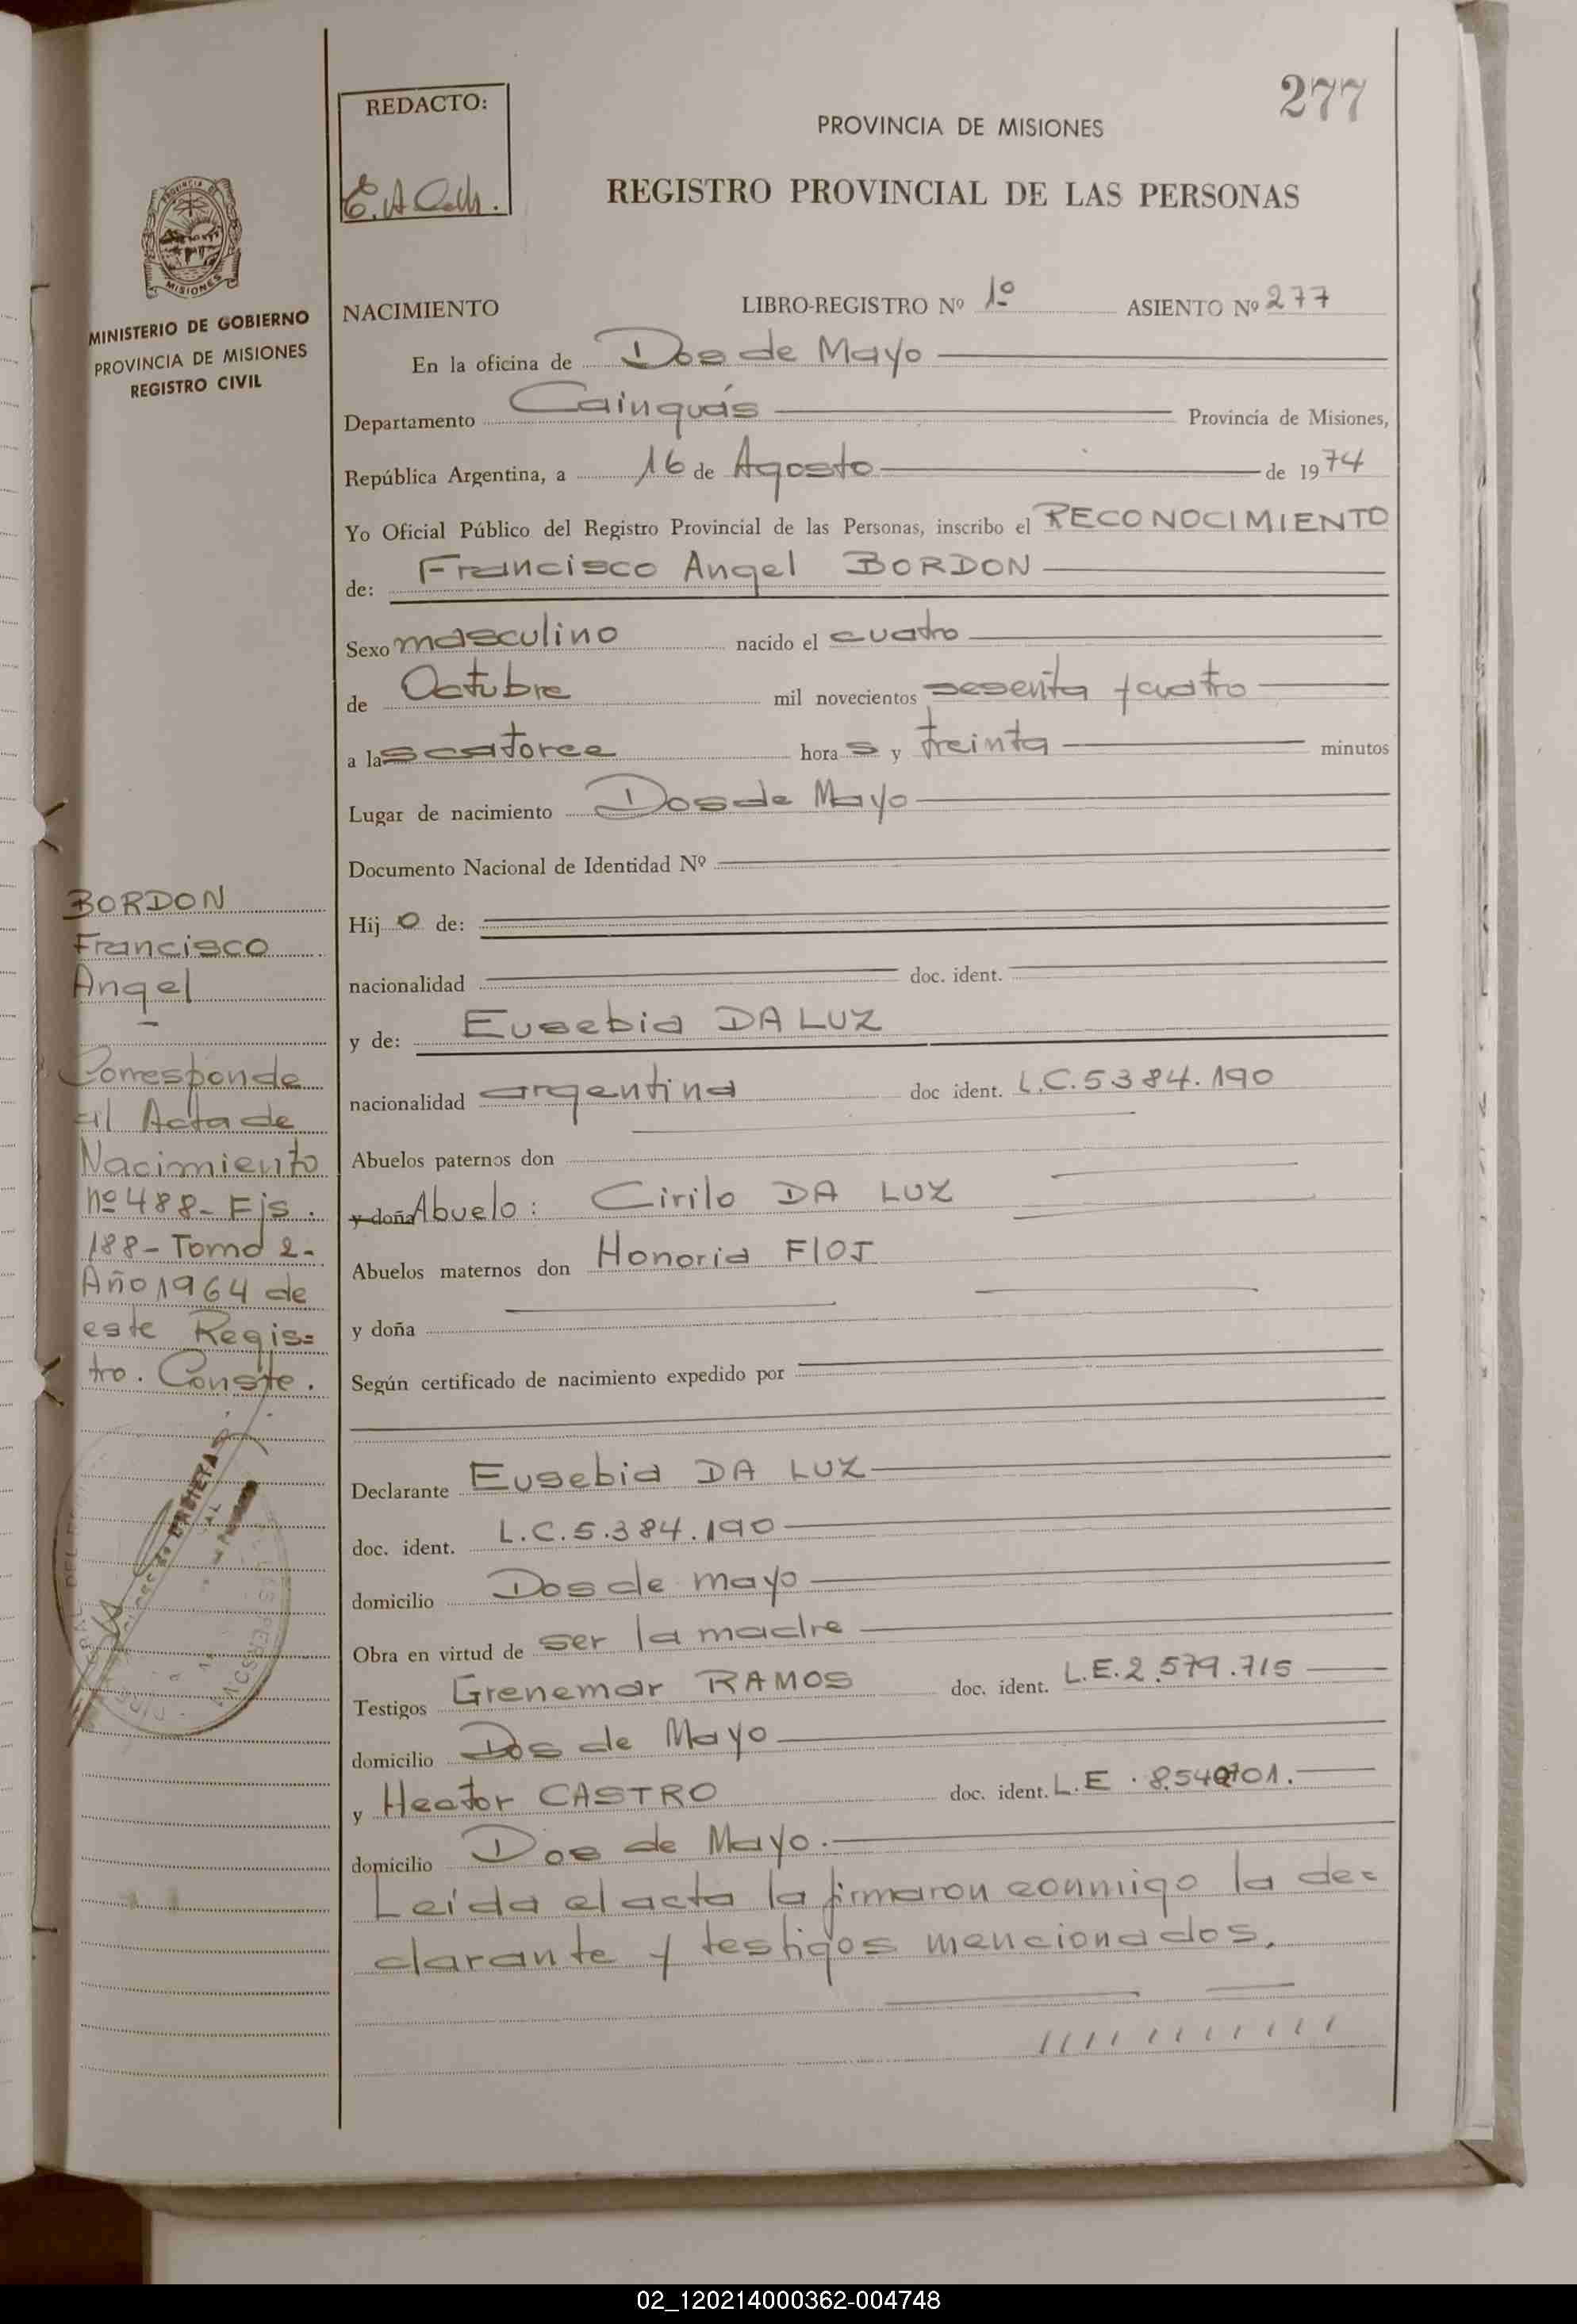 277
REDACTO:
PROVINCIA DE MISIONES
REGISTRO PROVINCIAL DE LAS PERSONAS
MISIONES
MINISTERIO DE GOBIERNO
PROVINCIA DE MISIONES
REGISTRO CIVIL
NACIMIENTO LIBRO-REGISTRO Nº 1º ASIENTO Nº 277
En la oficina de Dos de Mayo
Departamento Cainguás Provincia de Misiones,
República Argentina, a 16 de Agosto de 1974
Yo Oficial Público del Registro Provincial de las Personas, inscribo el RECONOCIMIENTO
de: Francisco Angel BORDON
Sexo masculino nacido el cuatro
de Octubre mil novecientos sesenta y cuatro
a las catorce horas y treinta minutos
Lugar de nacimiento Dos de Mayo
Documento Nacional de Identidad Nº
Hijo de:
nacionalidad doc. ident.
y de: Eusebia DA LUZ
nacionalidad argentina doc ident. L.C.5.384.190
Abuelos paternos don
y doña Abuelo: Cirilo DA LUZ
Abuelos maternos don Honoria
y doña
Según certificado de nacimiento expedido por
Declarante Eusebia DA LUZ
doc. ident. L.C.5.384.190
domicilio Dos de mayo
Obra en virtud de ser la madre
Testigos Grenemar RAMOS doc. ident. L.E.2.579.715
domicilio Dos de Mayo
y Hector CASTRO doc. ident. L.E.
domicilio Dos de Mayo.
Leida el acta la firmaron conmigo la de=
clarante y testigos mencionados.
BORDON
Francisco
Angel
Corresponde
al Acta de
Nacimiento
nº 488- Fjs.
188- Tomo 2-
Año 1964 de
este Regis=
tro. Conste.
02_120214000362-004748